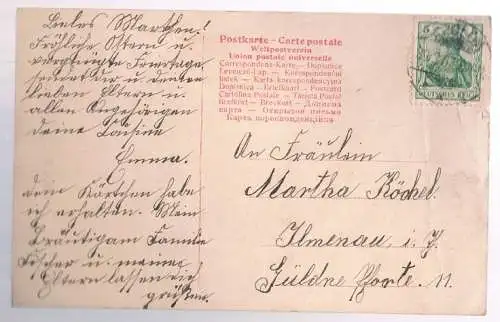 Liebes Marthchen!
Fröhliche Ostern u.
vergnügte Feiertage
sendet dir u. deinen
lieben Eltern u.
allen Angehörigen
deine Cousine
Emma.
dein Kärtchen habe
ich erhalten. Mein
Bräutigam Familie
Fischer u. meine
Eltern lassen dich
grüßen.
Postkarte - Carte postale
Weltpostverein
Union postale universelle
Correspondenz-Karte
Levelező-Lap
Karta korespondencyjna
Dopisnica - Briefkaart - Postcard
Cartolina Postale - Tarjeta Postal
Brefkort - Brevkort
карта - Открытое письмо
Карта
5
DEUTSCHES REICH
An Fräulein
Martha Köchel.
Ilmenau i. T.
Güldne Pforte. 11.